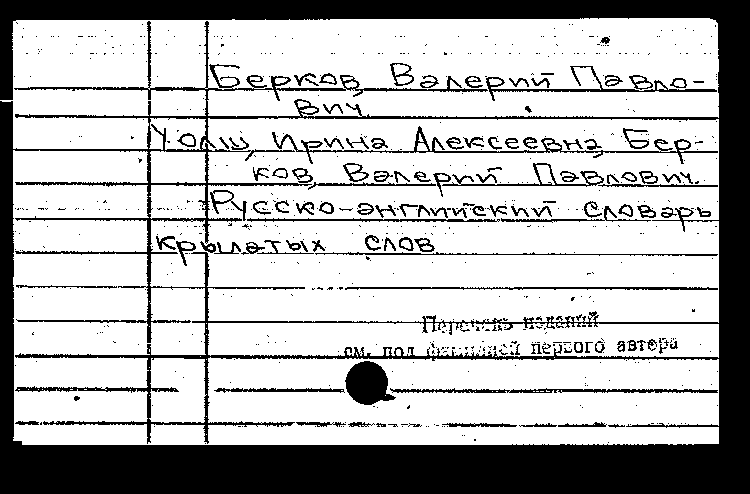 Берков, Валерий Павло-
вич.
Уолш, Ирина Алексеевна, Бер-
ков, Валерий Павлович.
Русско-английский словарь
крылатых слов
Перечень изданий
см. под фамилией первого автора